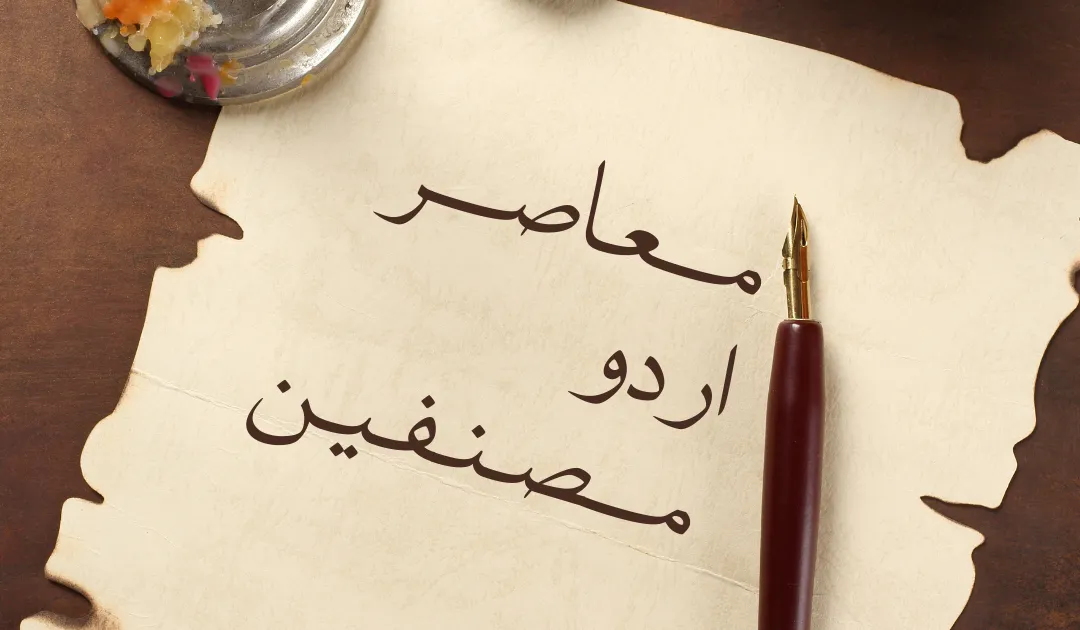 معاصر
اردو
مصنفین